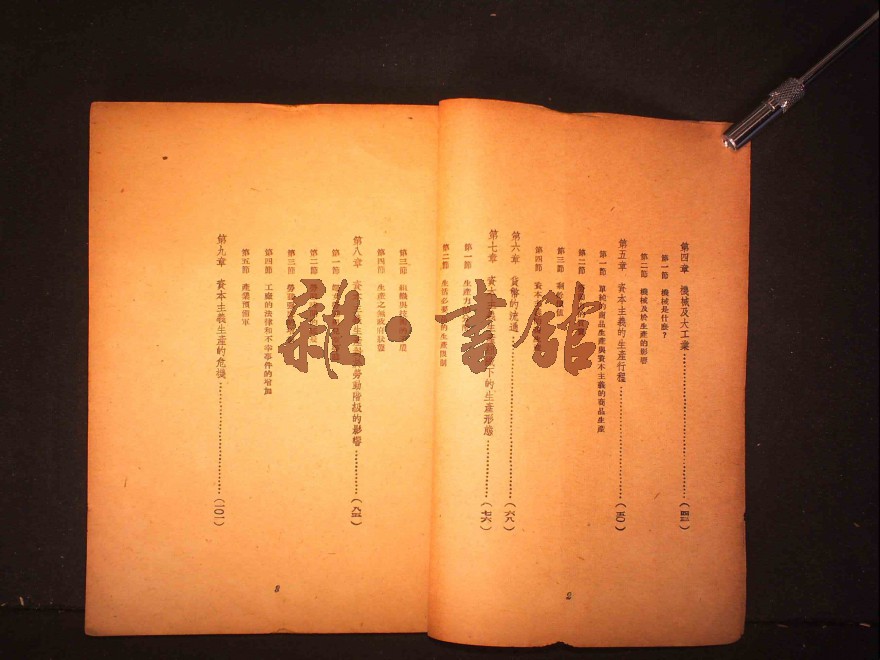 第四章 機械及大工業……………(四三)
第一節 機械是什麼?
第二節 機械及於生產的影響
第五章 資本主義的生產行程……………(五〇)
第一節 單純的商品生產與資本主義的商品生產
第二節
第三節 剩 值
第四節 資本
第六章 貨幣的流通……………(六八)
第七章 資本主義生產 下的生產形態……………(七六)
第一節 生產力
第二節 生活必要 的生產限制
2
第三節 組織與技
第四節 生產之無政府狀態
第八章 資本主義生產 勞動階級的影響……………(八四)
第一節
第二節
第三節 勞
第四節 工廠的法律和不幸事件的增加
第五節 產業預備軍
第九章 資本主義生產的危機……………(一〇一)
3
雜·書館